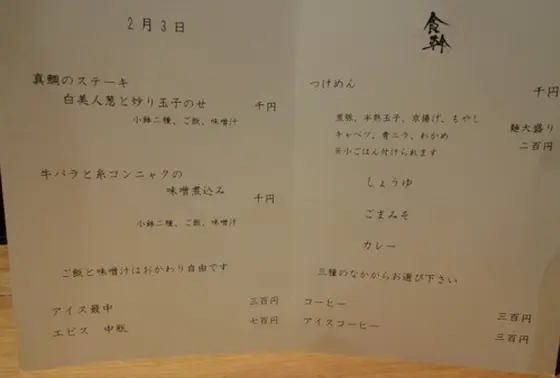 2月3日
真鯛のステーキ
白美人葱と炒り玉子のせ
千円
小鉢二種、ご飯、味噌汁
牛バラと糸コンニャクの
味噌煮込み
千円
小鉢二種、ご飯、味噌汁
ご飯と味噌汁はおかわり自由です
アイス最中 三百円
エビス 中瓶 七百円
食幹
つけめん
千円
煮豚、半熟玉子、京揚げ、もやし
キャベツ、青ニラ、わかめ
※小ごはん付けられます
麺大盛り
二百円
しょうゆ
ごまみそ
カレー
三種のなかからお選び下さい
コーヒー 三百円
アイスコーヒー 三百円